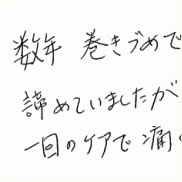 数年 巻きづめで
諦めていましたが
一回のケアで痛